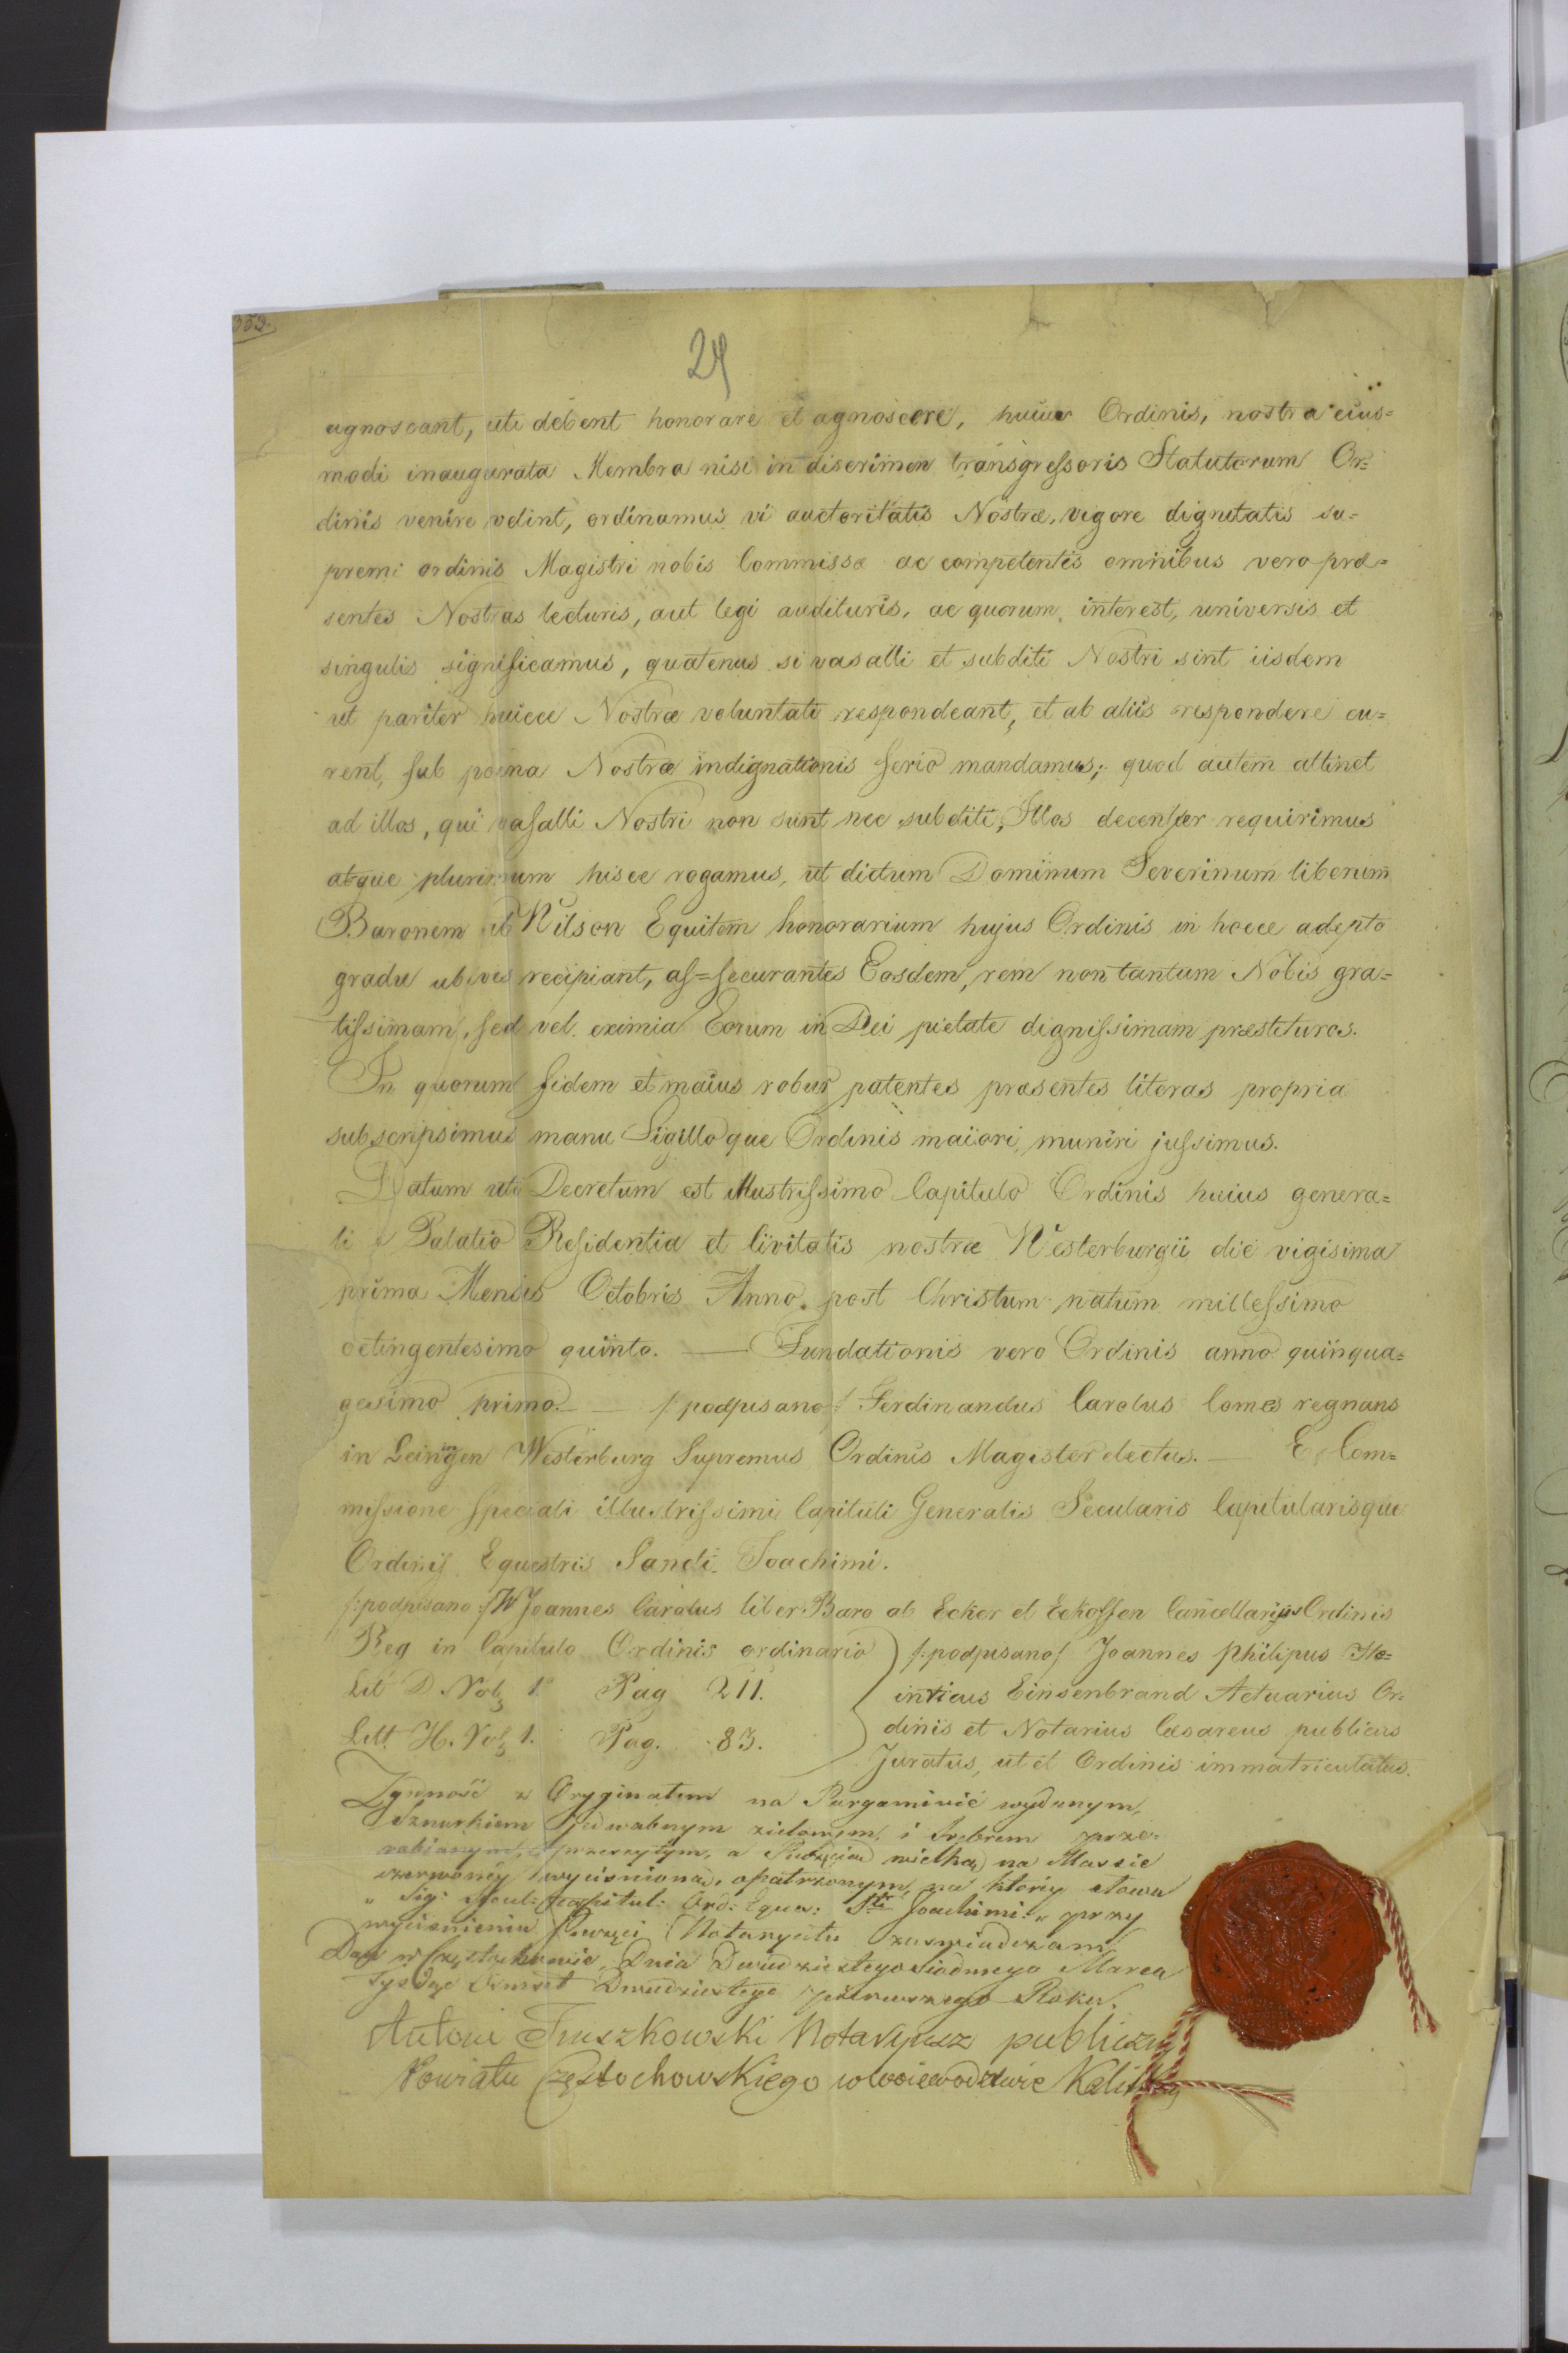 353.
24
agnoscant, uti debent honorare et agnoscere, huius Ordinis, nostra eius=
modi inaugurata Membra nisi in discrimen transgressoris Statutorum Or=
dinis venire velint, ordinamus vi auctoritatis Nostræ, vigore dignitatis su=
premi ordinis Magistri nobis Commissæ ac competentis omnibus vero præ=
sentes Nostras lecturis, aut legi audituris, ac quorum interest, universis et
singulis significamus, quatenus si vasalli et subditi Nostri sint iisdem
ut pariter huicce Nostræ voluntati respondeant, et ab aliis respondere cu=
rent, sub poena Nostræ indignationis serio mandamus; quod autem attinet
ad illos, qui vasalli Nostri non sunt nec subditi, Illos decenter requirimus
atque plurimum hisce rogamus, ut dictum Dominum Severinum liberum
Baronem ab Wilson Equitem honorarium hujus Ordinis in hocce adepto
gradu ubivis recipiant, as=securantes Eosdem, rem non tantum Nobis gra=
tissimam, sed vel eximia Eorum in Dei pietate dignissimam præstituros.
In quorum fidem et maius robur patentes præsentes literas propria
subscripsimus manu Sigilloque Ordinis maiori muniri jussimus.
Datum uti Decretum est Illustrissimo Capitulo Ordinis huius genera=
li Palatio Residentia et Civitatis nostræ Westerburgii die vigisima
prima Mensis Octobris Anno post Christum natum millessimo
octingentesimo quinto. — Fundationis vero Ordinis anno quinqua=
gesimo primo. — /:podpisano:/ Ferdinandus Carolus Comes regnans
in Leiningen Westerburg Supremus Ordinis Magister electus. — E Com=
missione speciali illustrissimi Capituli Generalis Secularis Capitularisque
Ordinis Equestris Sancti Joachimi.
/:podpisano:/ W Joannes Carolus liber Baro ab Ecker et Eckoffen Cancellarius Ordinis
Reg in Capitulo Ordinis ordinario
Lit D. Vol 1. Pag 211.
Litt. H. Vol 1. Pag. 83.
/:podpisano/ Joannes Philipus He=
inricus Einsenbrand Actuarius Or=
dinis et Notarius Cæsareus publicus
Juratus, ut et Ordinis immatriculatus.
Zgodność z Oryginałem na Pargaminie wydanym,
Sznurkiem jedwabnym zielonym i Srebrem prze=
rabianym, przeszytym, a Pieczęcią wielką na Massie
czerwoney wyciśnioną, opatrzonym, na ktory słowa
" Sig: Secul: Capitul: Ord: Eque: Sti Joachimi: " przy
wyciśnieniu Pieczęci Notaryatu zaswiadczam
Dan w Częstochowie, Dnia Dwudziestego Siodmego Marca
Tysiąc Osmset Dwudziestego pierwszego Roku.
Antoni Truszkowski Notaryusz publiczny
Powiatu Częstochowskiego w Woiewodztwie Kalis